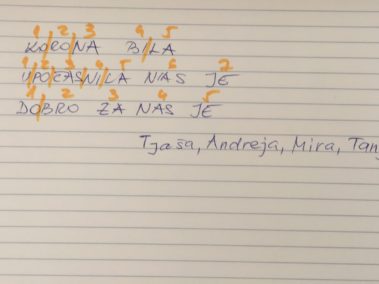 1 2 3 4 5
KO/RO/NA BI/LA
1 2 3 4 5 6 7
UPO/ČAS/NI/LA NAS JE
1 2 3 4 5
DO/BRO ZA NAS JE
Tjaša, Andreja, Mira, Tanj